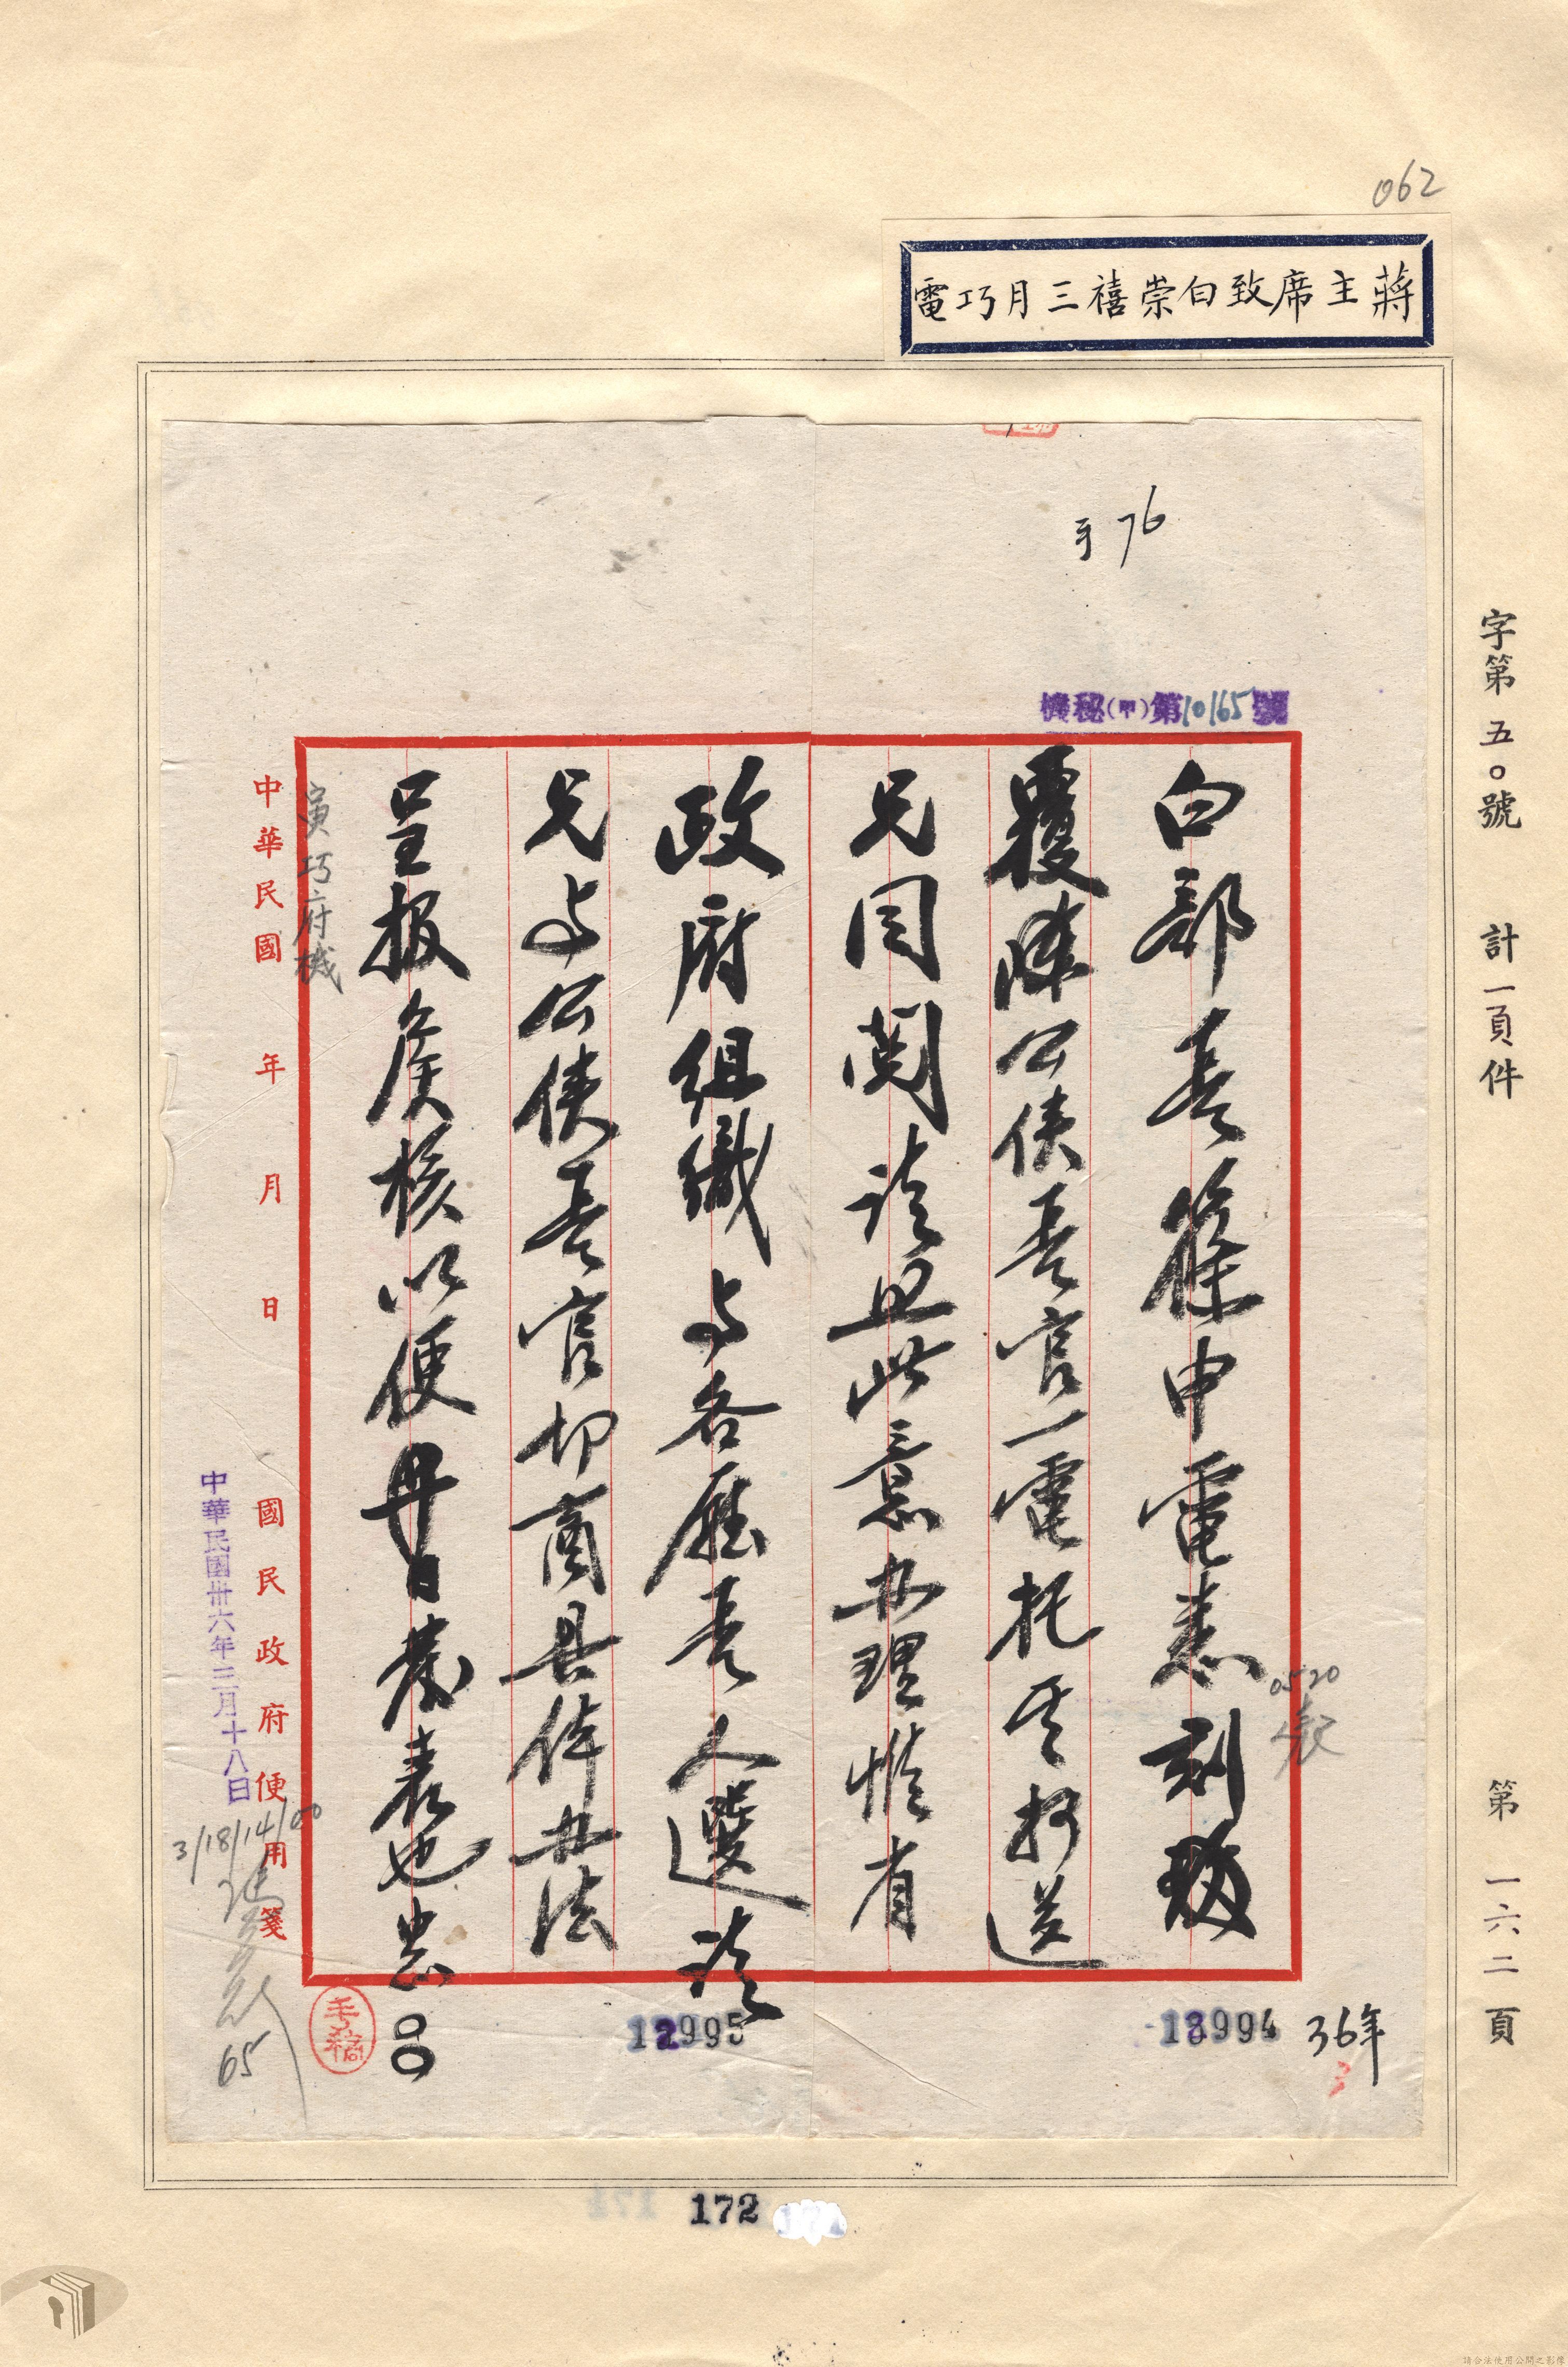 062
蔣主席致白崇禧三月巧電
手76
機秘(甲)第10165號
白部長篠申電悉刻致
覆陳公俠長官一電托其抄送
兄同閱請照此意辦理惟省
政府組織與各廳長人選請
兄與公俠長官切商具体办法
呈报候核以便早日發表也中
正
寅巧府機
中華民國 年 月 日
國民政府便用箋
中華民國卅六年三月十八日
3/18/14/00
65
手稿
0520
12995
13994
36年
3
字第五0號 計一頁件
第一六二頁
172
請合法使用公開之影像